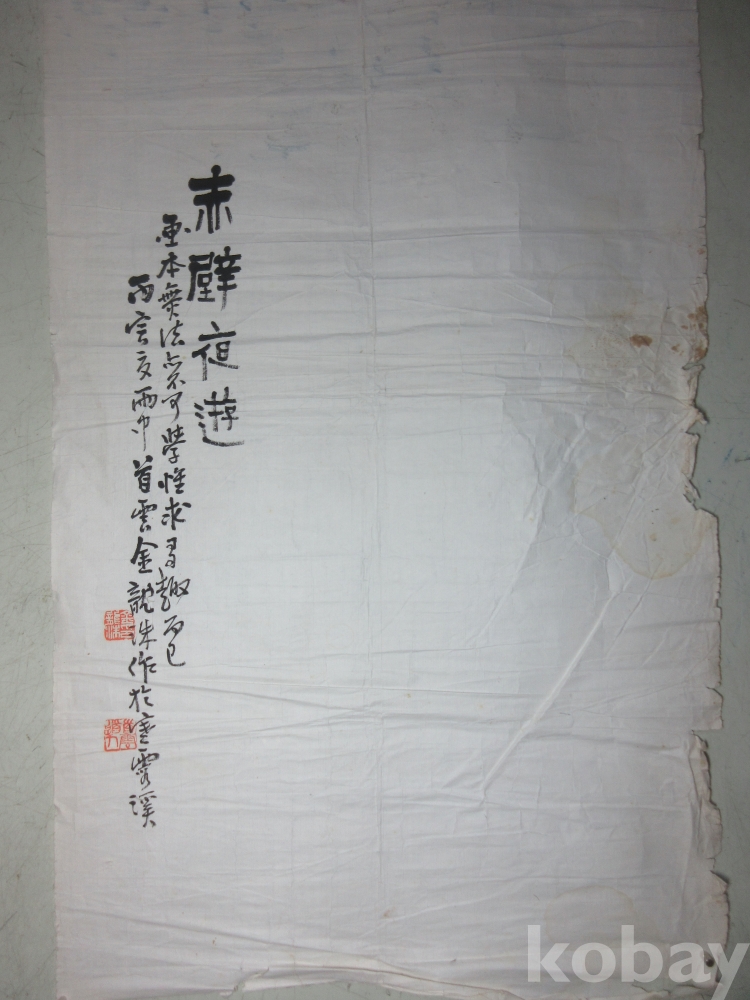 赤壁夜遊
画本無法亦不可學惟求寻趣而已
丙寅交雨中首雲金龍洙作於寒霞溪
kobay